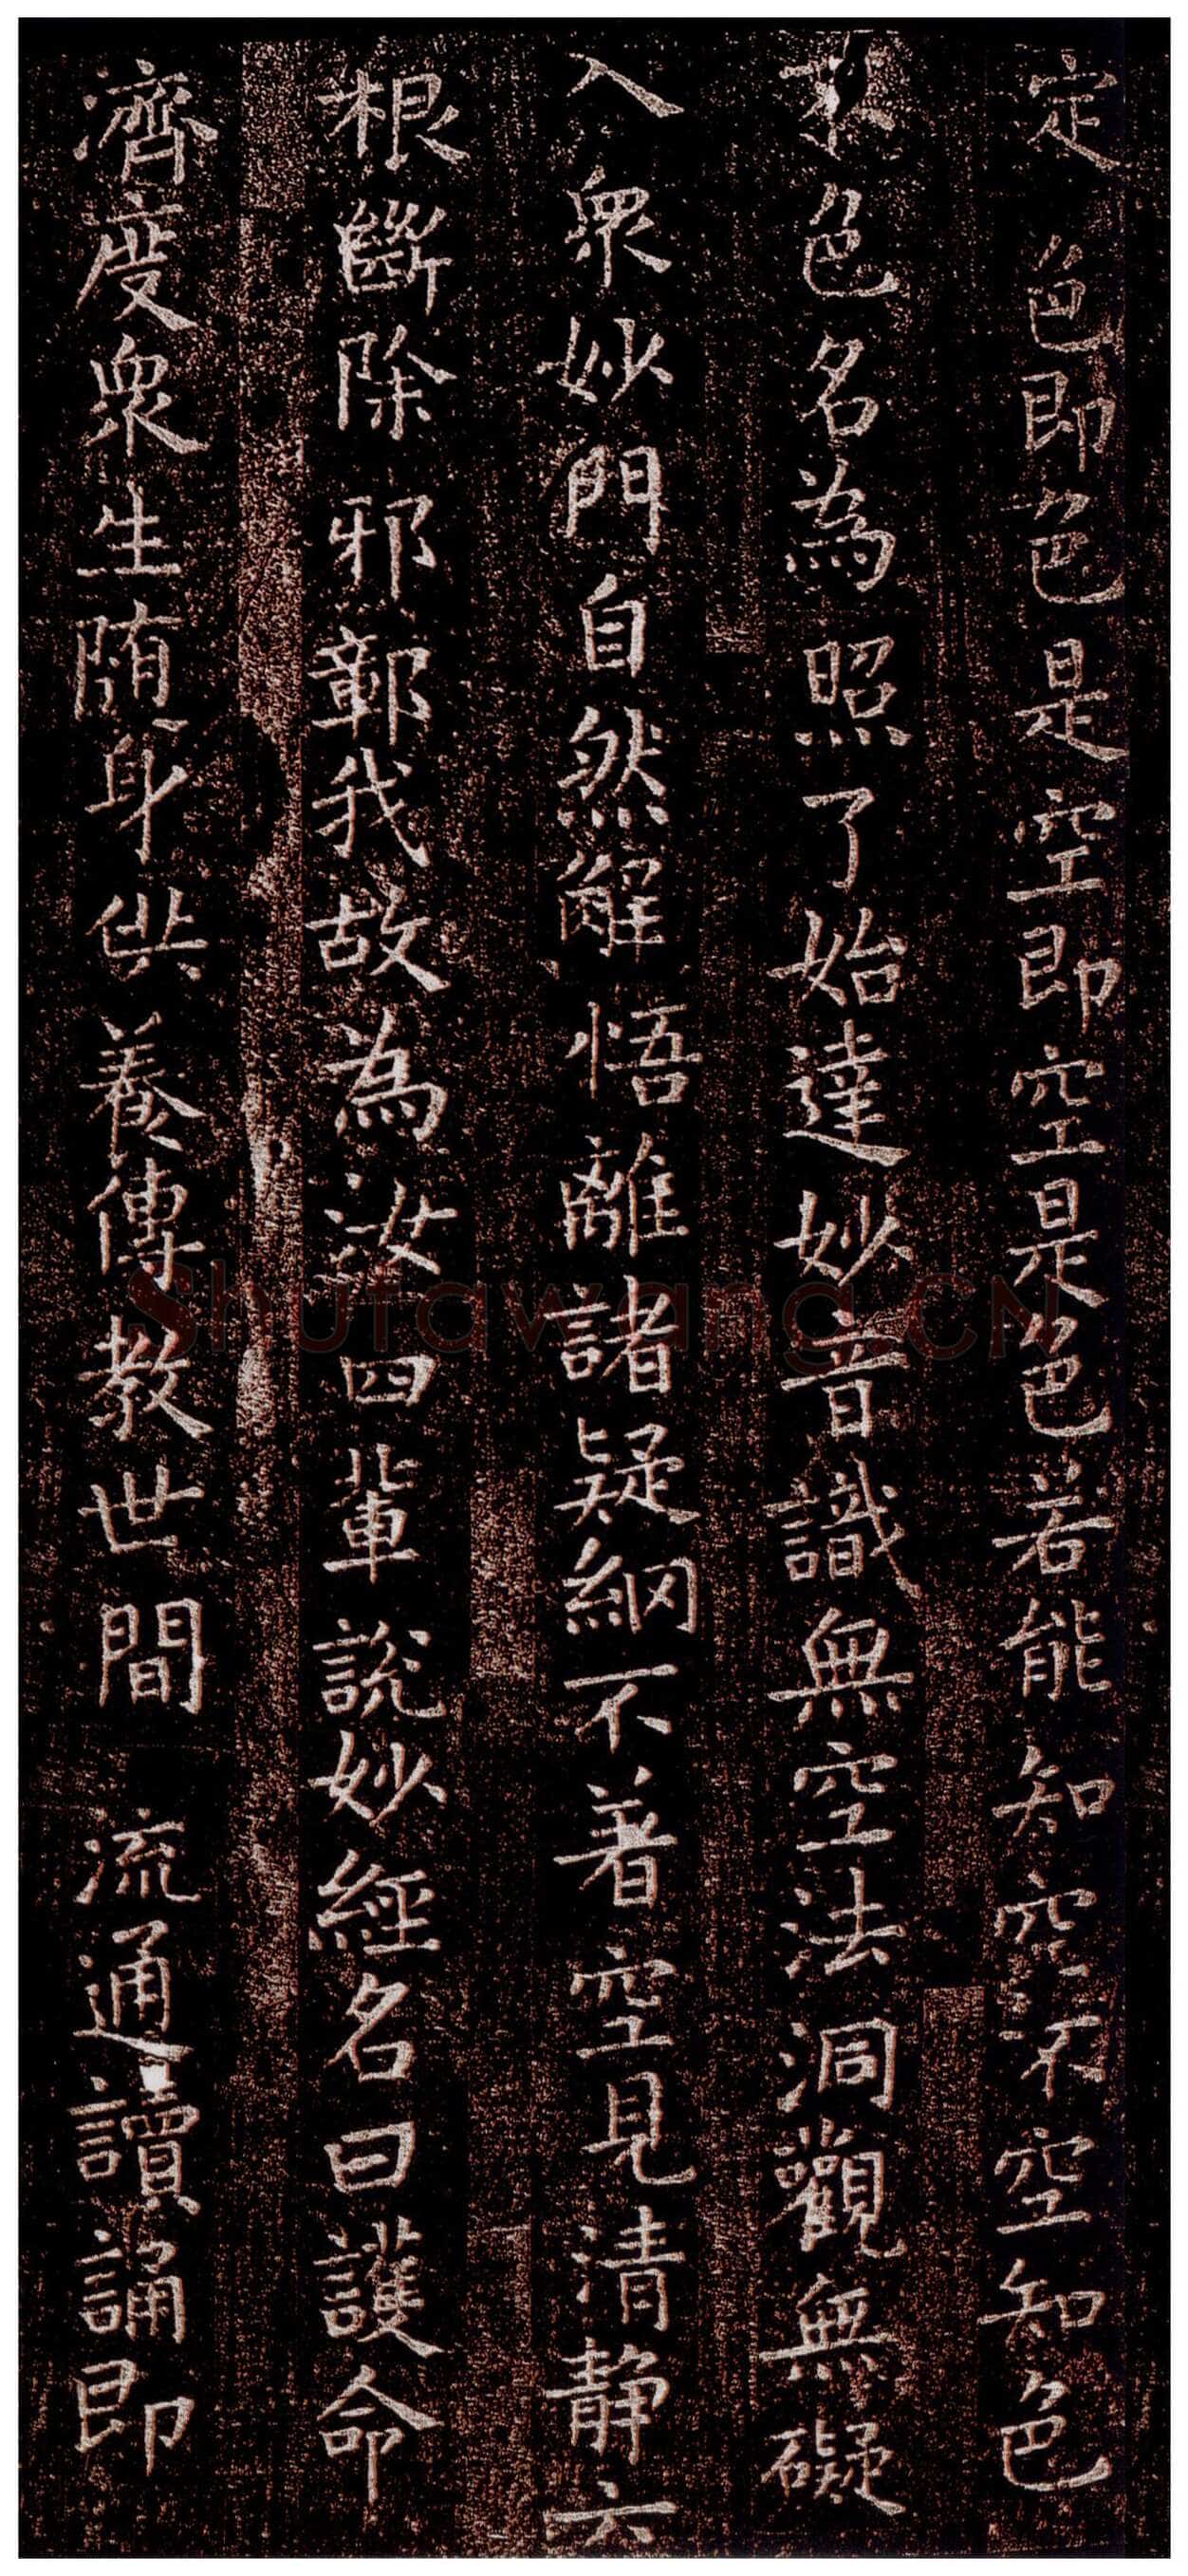 定色即色是空即空是色若能知空不空知色
不色名為照了始達妙音識無空法洞觀無礙
入眾妙門自然解悟離諸疑網不著空見清静六
根斷除邪鄣我故為汝四輩説妙經名曰護命
濟度眾生随身供養傳教世間流通讀誦即
Shufawang.CN